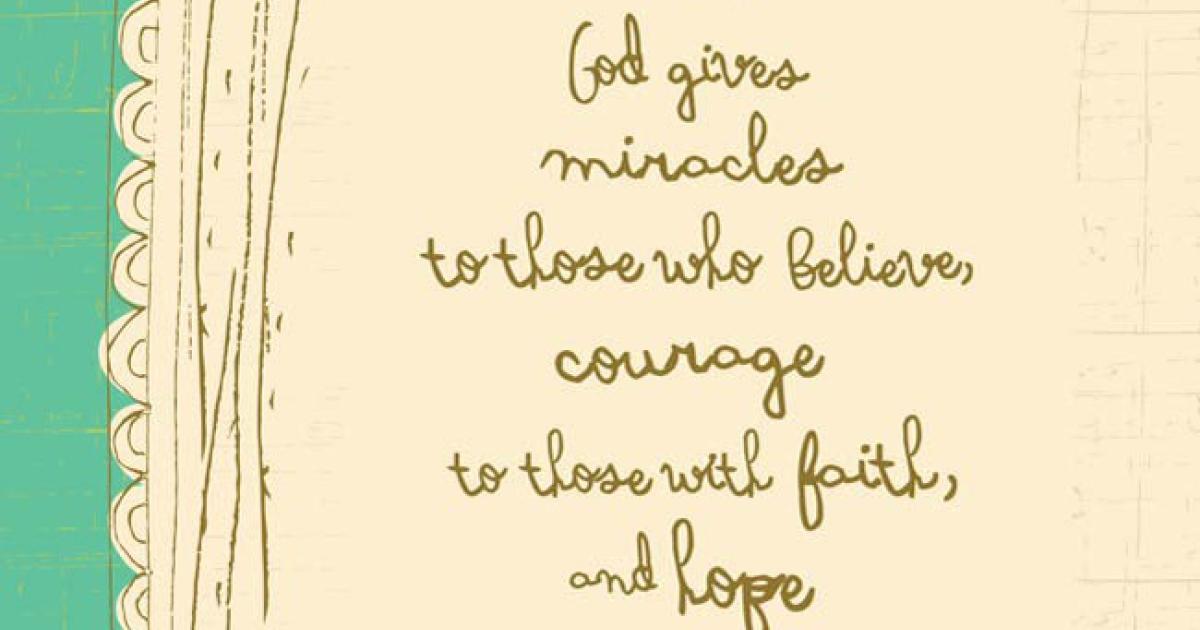 God gives
miracles
to those who believe,
courage
to those with faith,
and hope